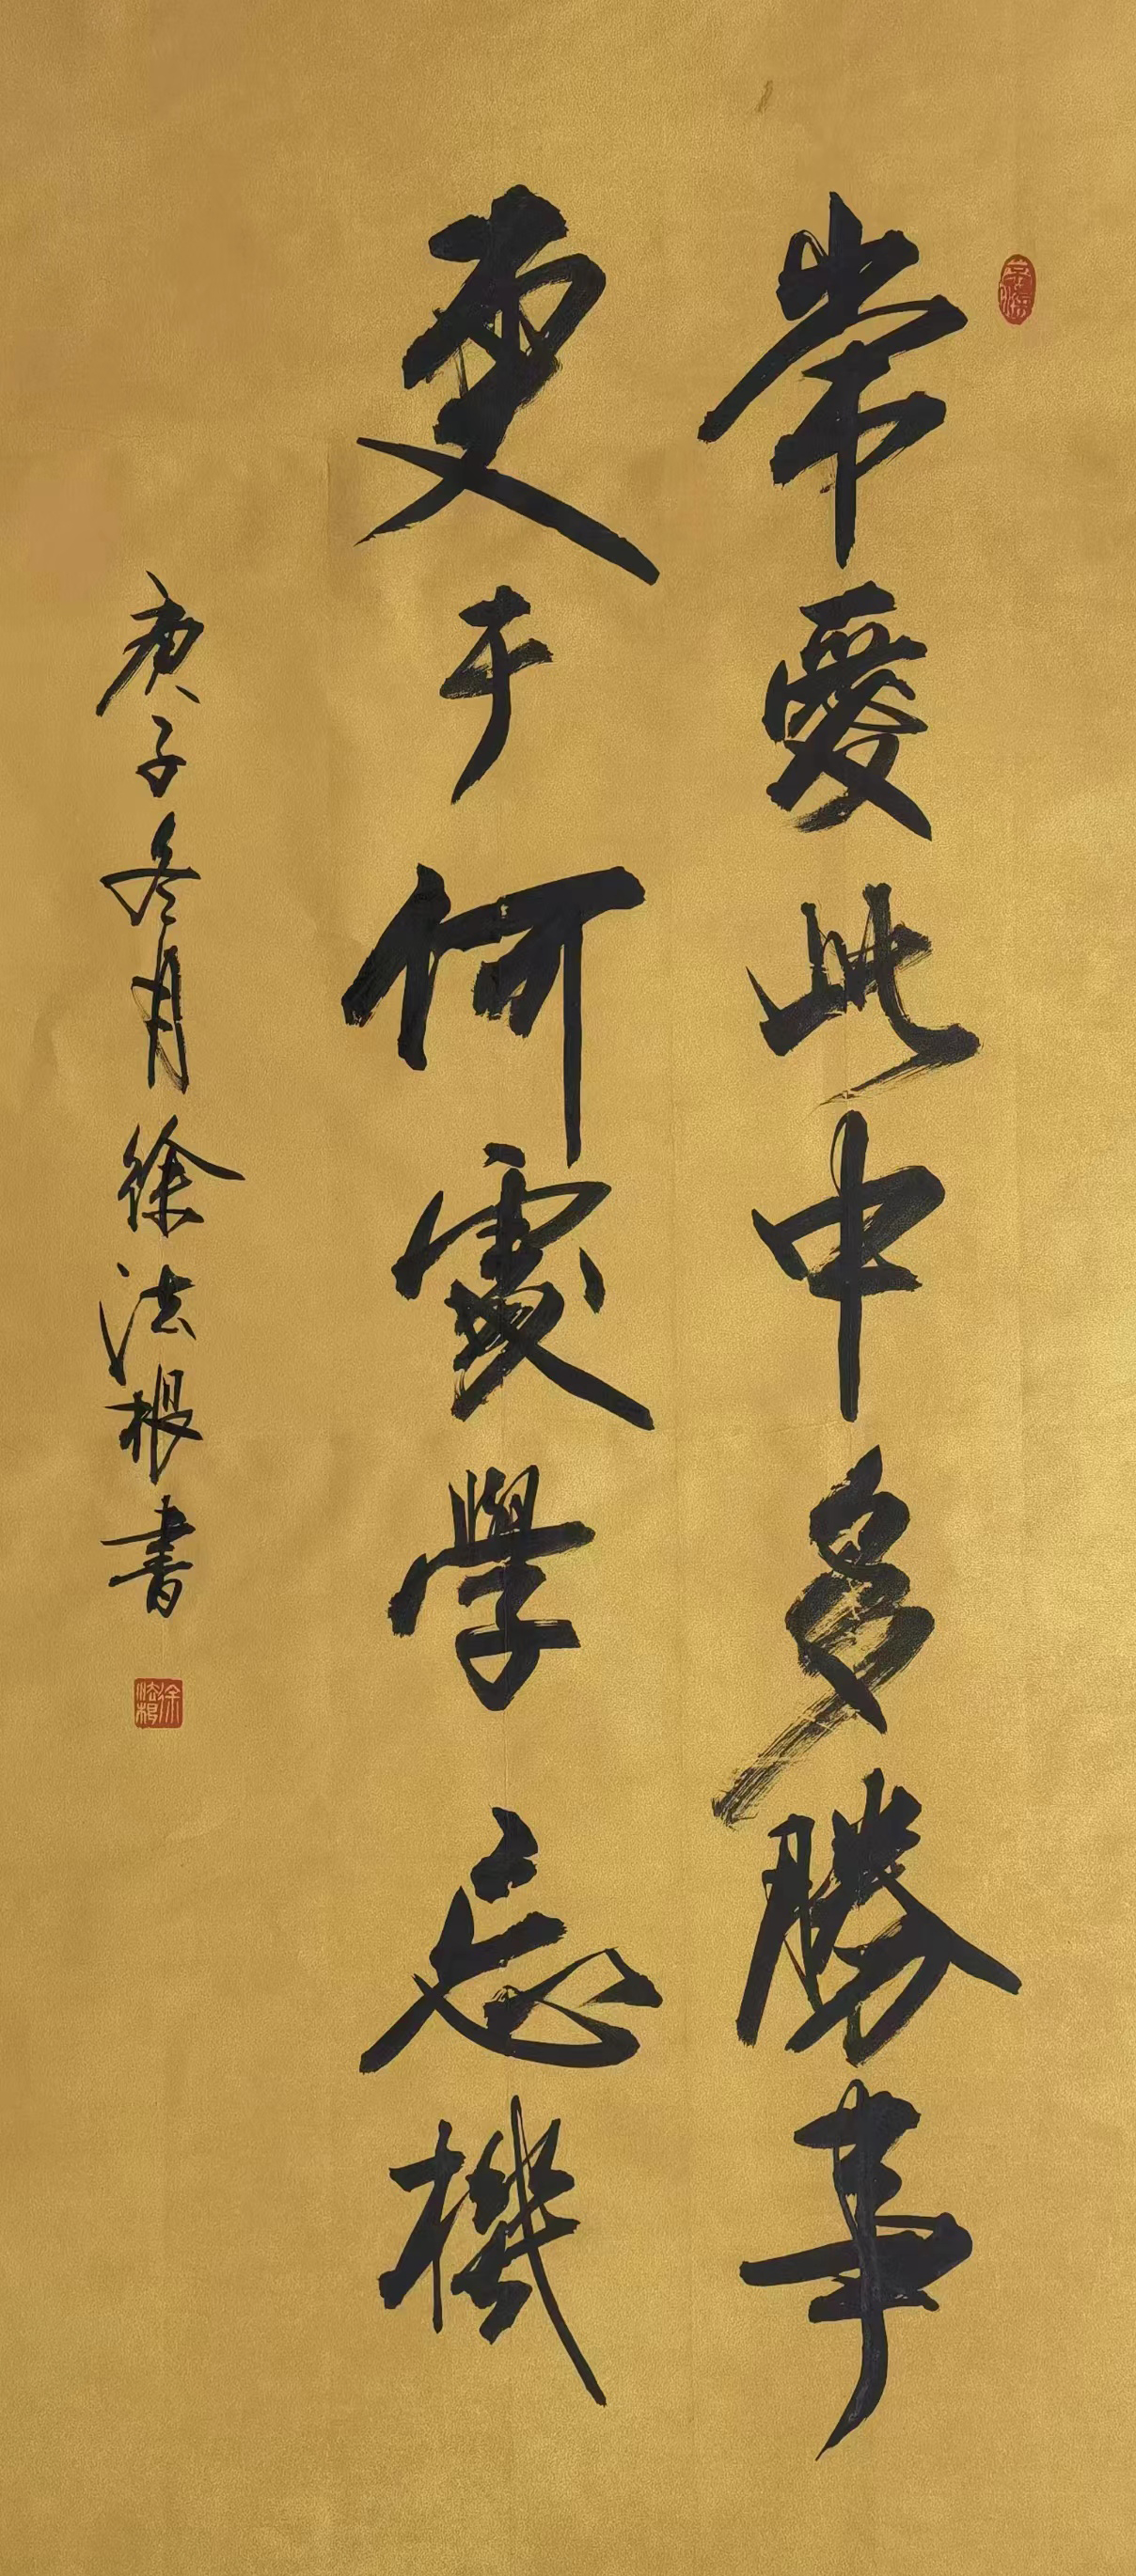 常愛此中多勝事
更于何處學忘機
庚子冬月徐法根書
徐法根